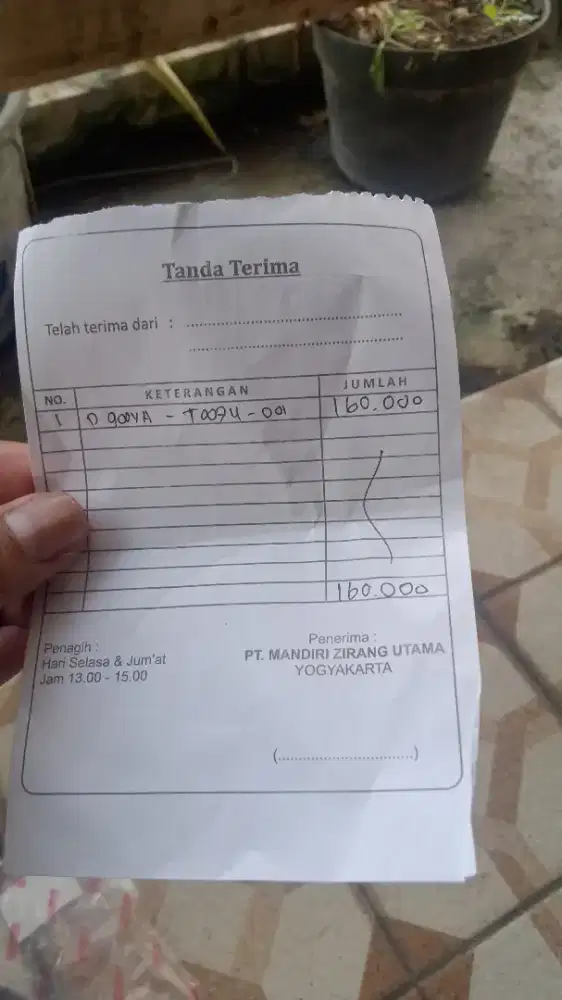 Tanda Terima
Telah terima dari : ........................................
........................................
NO. KETERANGAN JUMLAH
1 160.000
160.000
Penagih :
Hari Selasa & Jum'at
Jam 13.00 - 15.00
Penerima :
PT. MANDIRI ZIRANG UTAMA
YOGYAKARTA
(................................)